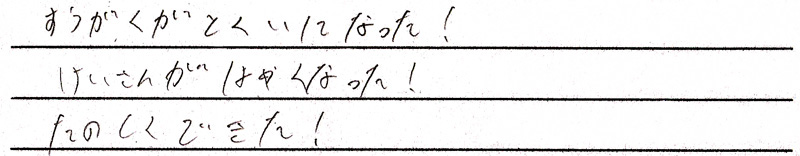 すうがくがとくいになった！
けいさんがはやくなった！
たのしくできた！